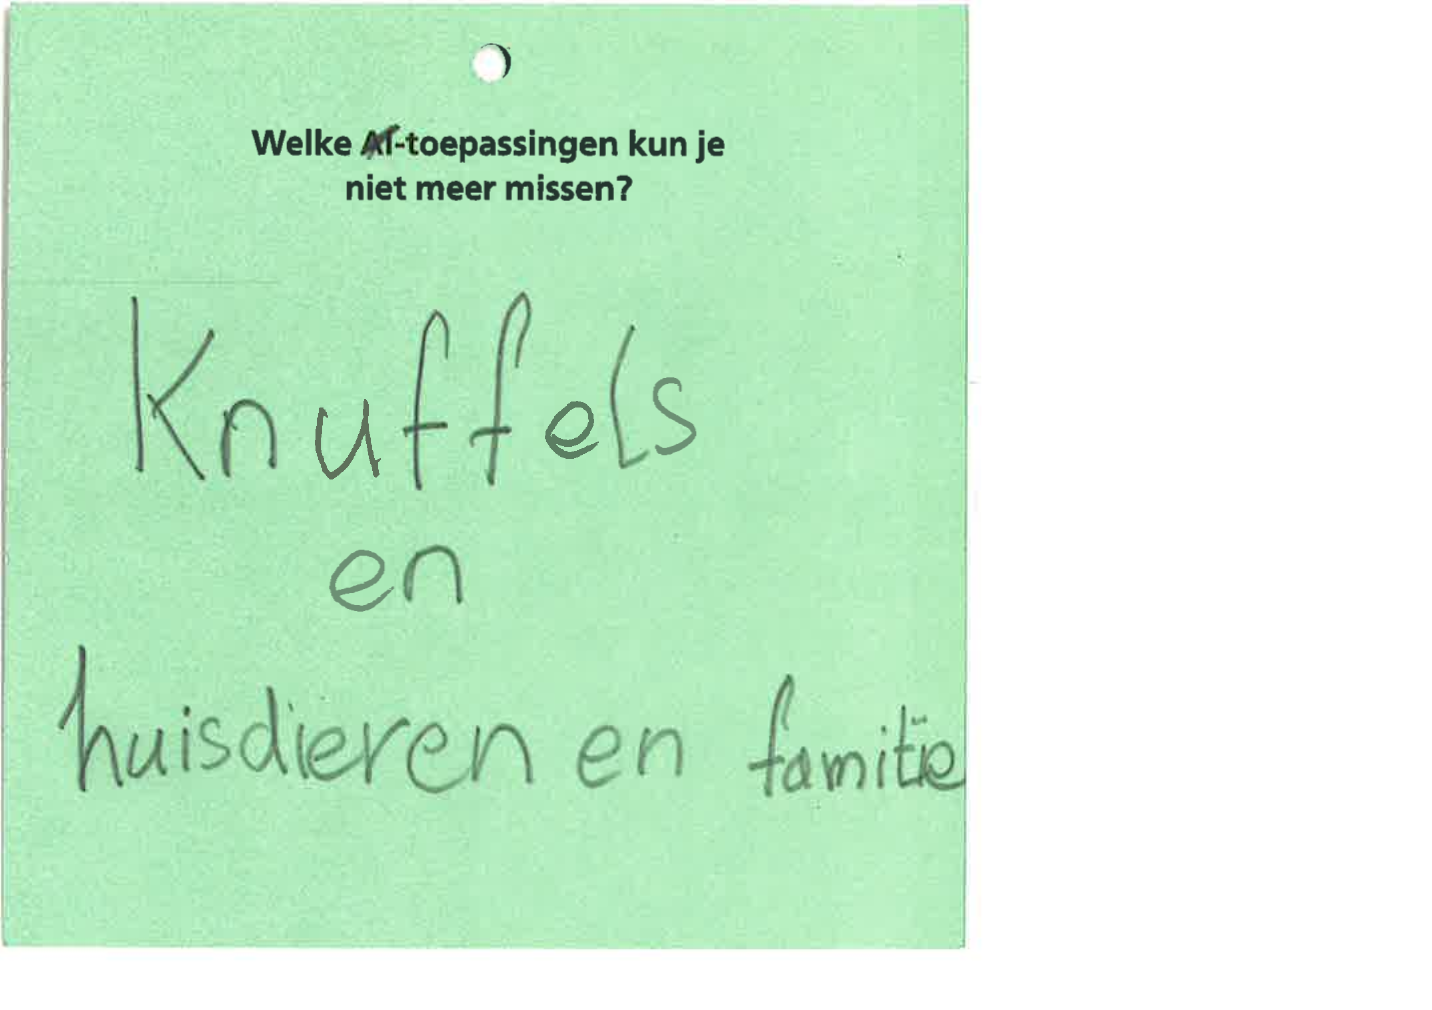 Welke AI-toepassingen kun je
niet meer missen?
Knuffels
en
huisdieren en familie